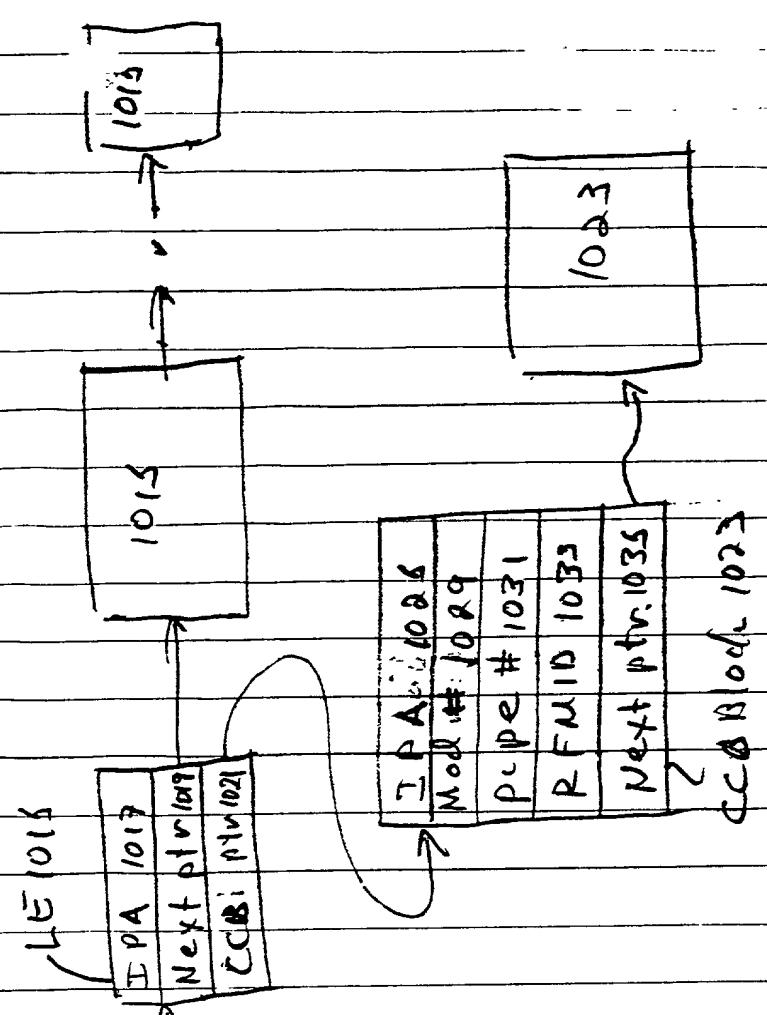 LE 1015
IPA 1017
Next ptr 1019
CCBi ptr 1021
1015
1015
IPA 1026
Mod #: 1029
Pipe # 1031
RFMID 1033
Next ptr: 1035
CCB Block 1023
1023